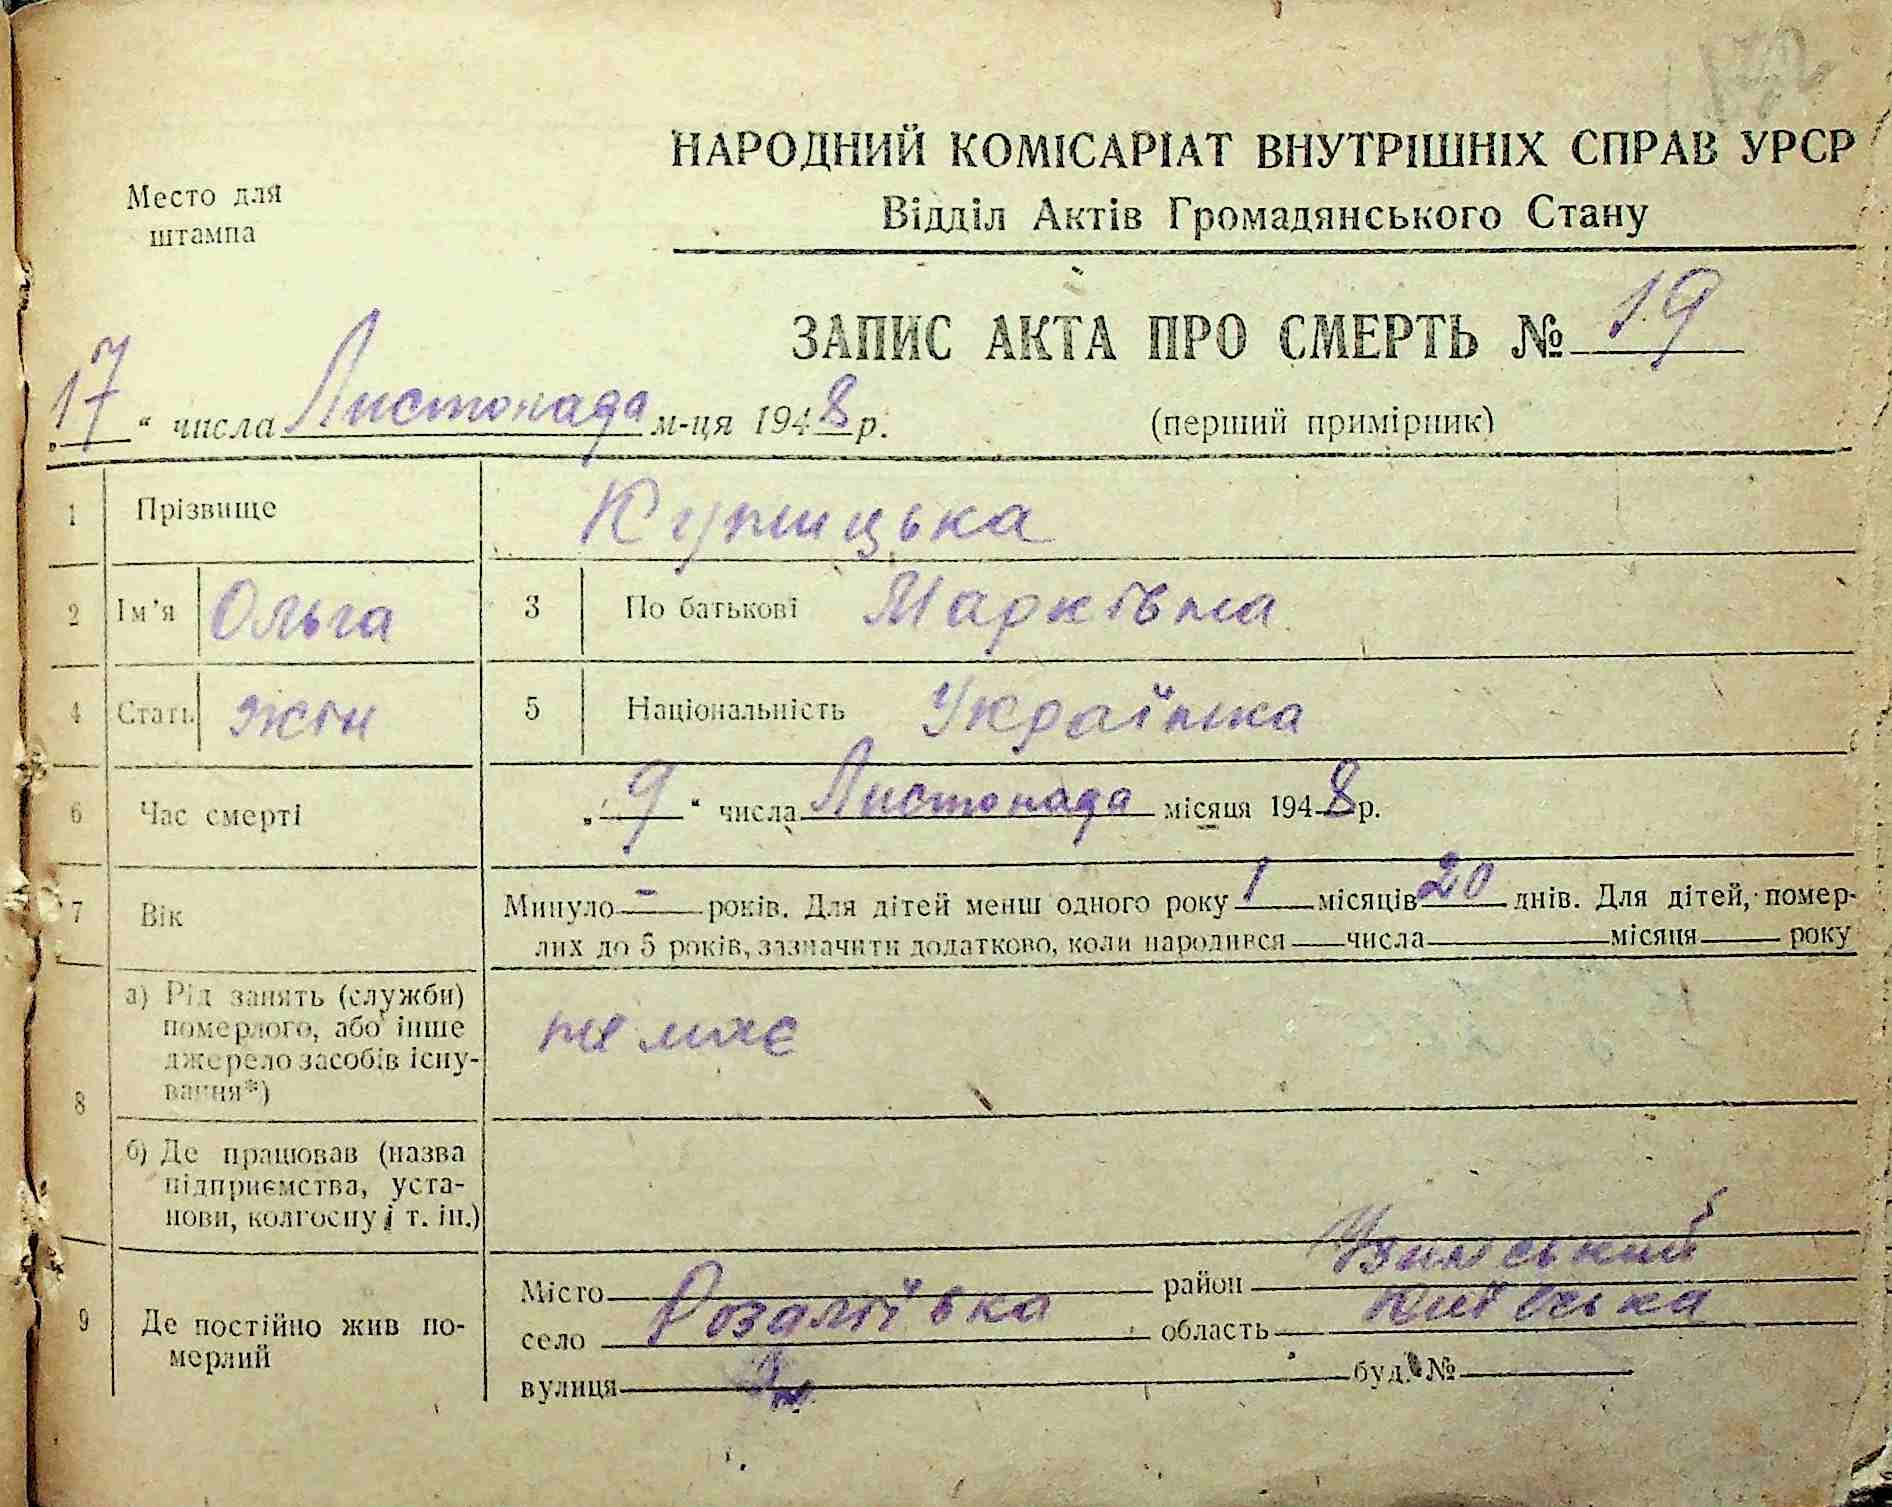 НАРОДНИЙ КОМІСАРІАТ ВНУТРІШНІХ СПРАВ УРСР
Место для
штампа
Відділ Актів Громадянського Стану
ЗАПИС АКТА ПРО СМЕРТЬ № 19
„17“ числа Листопада м-ця 1948 р.
(перший примірник)
1 Прізвище Купицька
2 Ім'я Ольга 3 По батькові Марківна
4 Стать жін 5 Національність Українка
6 Час смерті „9“ числа Листопада місяця 1948 р.
7 Вік Минуло - років. Для дітей менш одного року 1 місяців 20 днів. Для дітей, помер-
лих до 5 років, зазначити додатково, коли народився числа місяця року
8 а) Рід занять (служби)
померлого, або інше
джерело засобів існу-
вання*)
не має
б) Де працював (назва
підприємства, уста-
нови, колгоспу і т. ін.)
9 Де постійно жив по-
мерлий
Місто район Узинський
село Розаліївка область Київська
вулиця буд. №